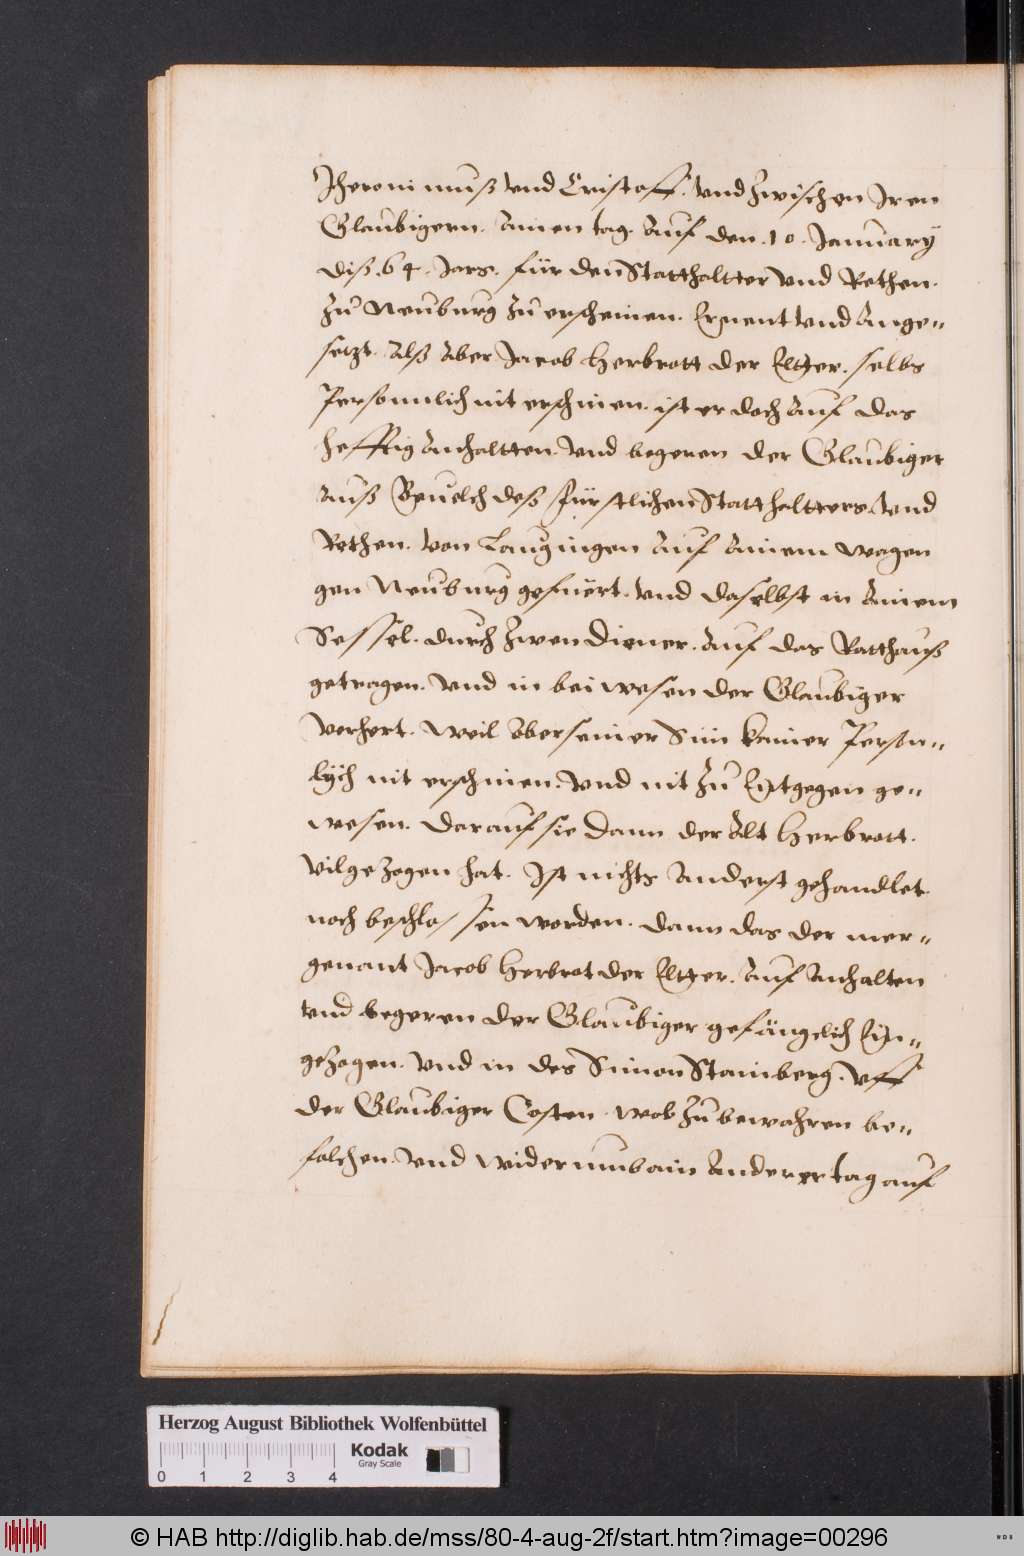 Jheronimuß vnd Cristoff. vnd zwischen Iren
Glaubigern. Ainen tag. Auf den .10. January
diß .64. Jars. für den Statthaltter vnd Rethen.
zu Neuburg zu erscheinen. Ernent vnd Ange=
setzt. Alß Aber Jacob Herbrott der Elltter. selbs
Personnlich nit erschinen. ist er doch Auf das
hefftig Anhaltten. vnd begeren der Glaubiger
Auß Beuelch deß Fürstlichen Statthaltters. vnd
Rethen. von Laugingen Auf Ainem wagen
gen Neuburg gefuert. vnd daselbst in Ainem
Sessel. durch zwen diener. Auf das Ratthauß
getragen. vnd in beiwesen der Glaubiger
verhert. weil Aber seiner Sün kainer Person=
lych nit erschinen. vnd nit zu Entgegen ge=
wesen. darauf sie dann der Alt Herbrott.
vil gezogen hat. Ist nichts Anderst gehandlet.
noch beschlossen worden. dann das der mer=
genant Jacob Herbrot der Elltter. Auf Anhalten
vnd begeren der Glaubiger gefängclich Ein=
gezogen. vnd in des Simon Stainberg. vff
der Glaubiger Costen. wol zu bewahren be=
folchen. vnd widerumb ain Anderer tag auf
Herzog August Bibliothek Wolfenbüttel
Kodak
Gray Scale
0 1 2 3 4
© HAB http://diglib.hab.de/mss/80-4-aug-2f/start.htm?image=00296